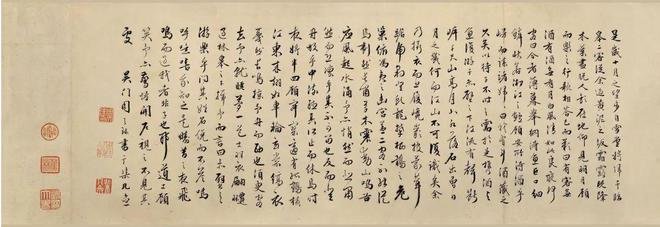 是歲十月之望步自雪堂將歸于臨
皋二客從余過黃泥之坂霜露既降
木葉盡脫人影在地仰見明月顧
而樂之行歌相答已而歎曰有客無
酒有酒無肴月白風清如此良夜何
客曰今者薄暮舉網得魚巨口細
鱗狀若松江之鱸顧安所得酒乎
歸而謀諸婦婦曰我有斗酒藏之
久矣以待子不時之需於是攜酒與
魚復遊於赤壁之下江流有聲斷
岸千尺山高月小水落石出曾日
月之幾何而江山不可復識矣余
乃攝衣而上履巉巖披蒙茸
踞虎豹登虬龍攀栖鶻之危
巢俯馮夷之幽宮蓋二客不能從
焉劃然長嘯草木震動山鳴谷
應風起水涌予亦悄然而悲肅
然而恐凜乎其不可留也反而登
舟放乎中流聽其所止而休焉時
夜將半四顧寂寥適有孤鶴橫
江東來翅如車輪玄裳縞衣
戛然長鳴掠予舟而西也須臾客
去予亦就睡夢一道士羽衣翩躚
過臨皋之下揖予而言曰赤壁之
遊樂乎問其姓名俛而不答嗚
呼噫嘻我知之矣疇昔之夜飛
鳴而過我者非子也耶道士顧
笑予亦驚悟開戶視之不見其
處 吳門周